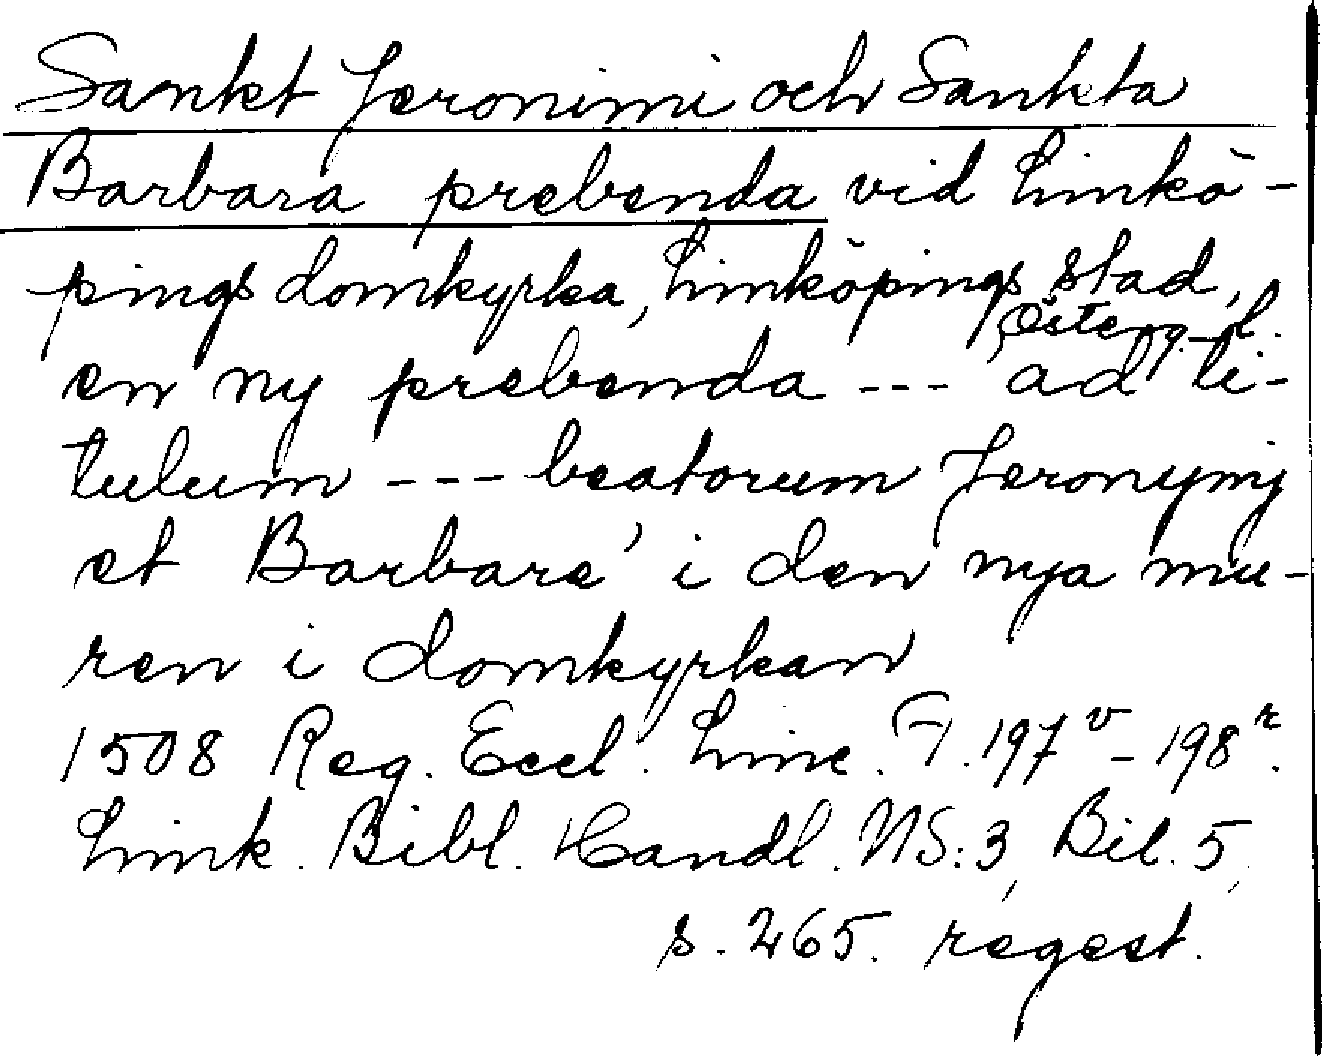 Sankt Jeronimi och Sankta
Barbara prebenda vid Linkö-
pings domkyrka, Linköpings stad,
Österg. l.
en ny prebenda --- ad ti-
tulum --- beatorum Jeronymj
et Barbare' i den nya mu-
ren i domkyrkan
1508 Reg. Eccl. Linc. F. 197v - 198r.
Link. Bibl. Handl. NS:3, Bil. 5,
s. 265. regest.